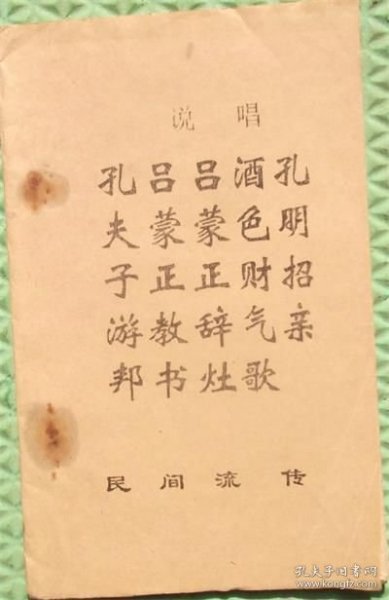 说唱
孔明招亲
酒色财气歌
吕蒙正辞灶
吕蒙正教书
孔夫子游邦
民间流传
孔夫子旧书网
kongfz.com